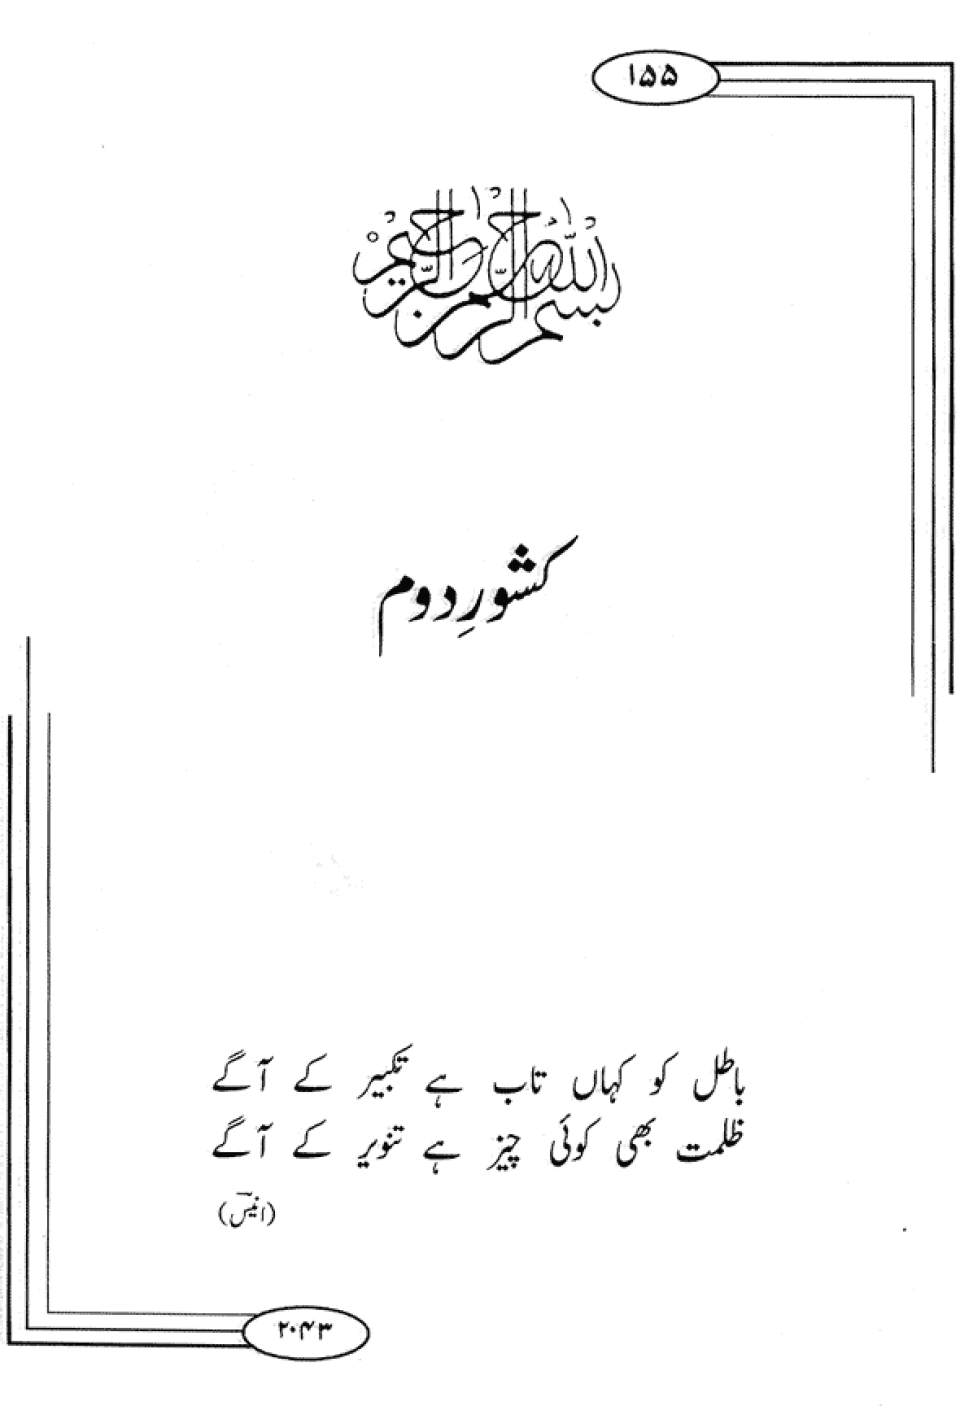 ۱۵۵
بسم الله الرحمن الرحیم
کشورِ دوم
باطل کو کہاں تاب ہے تکبیر کے آگے
ظلمت بھی کوئی چیز ہے تنویر کے آگے
(انیسؔ)
۲۰۴۳